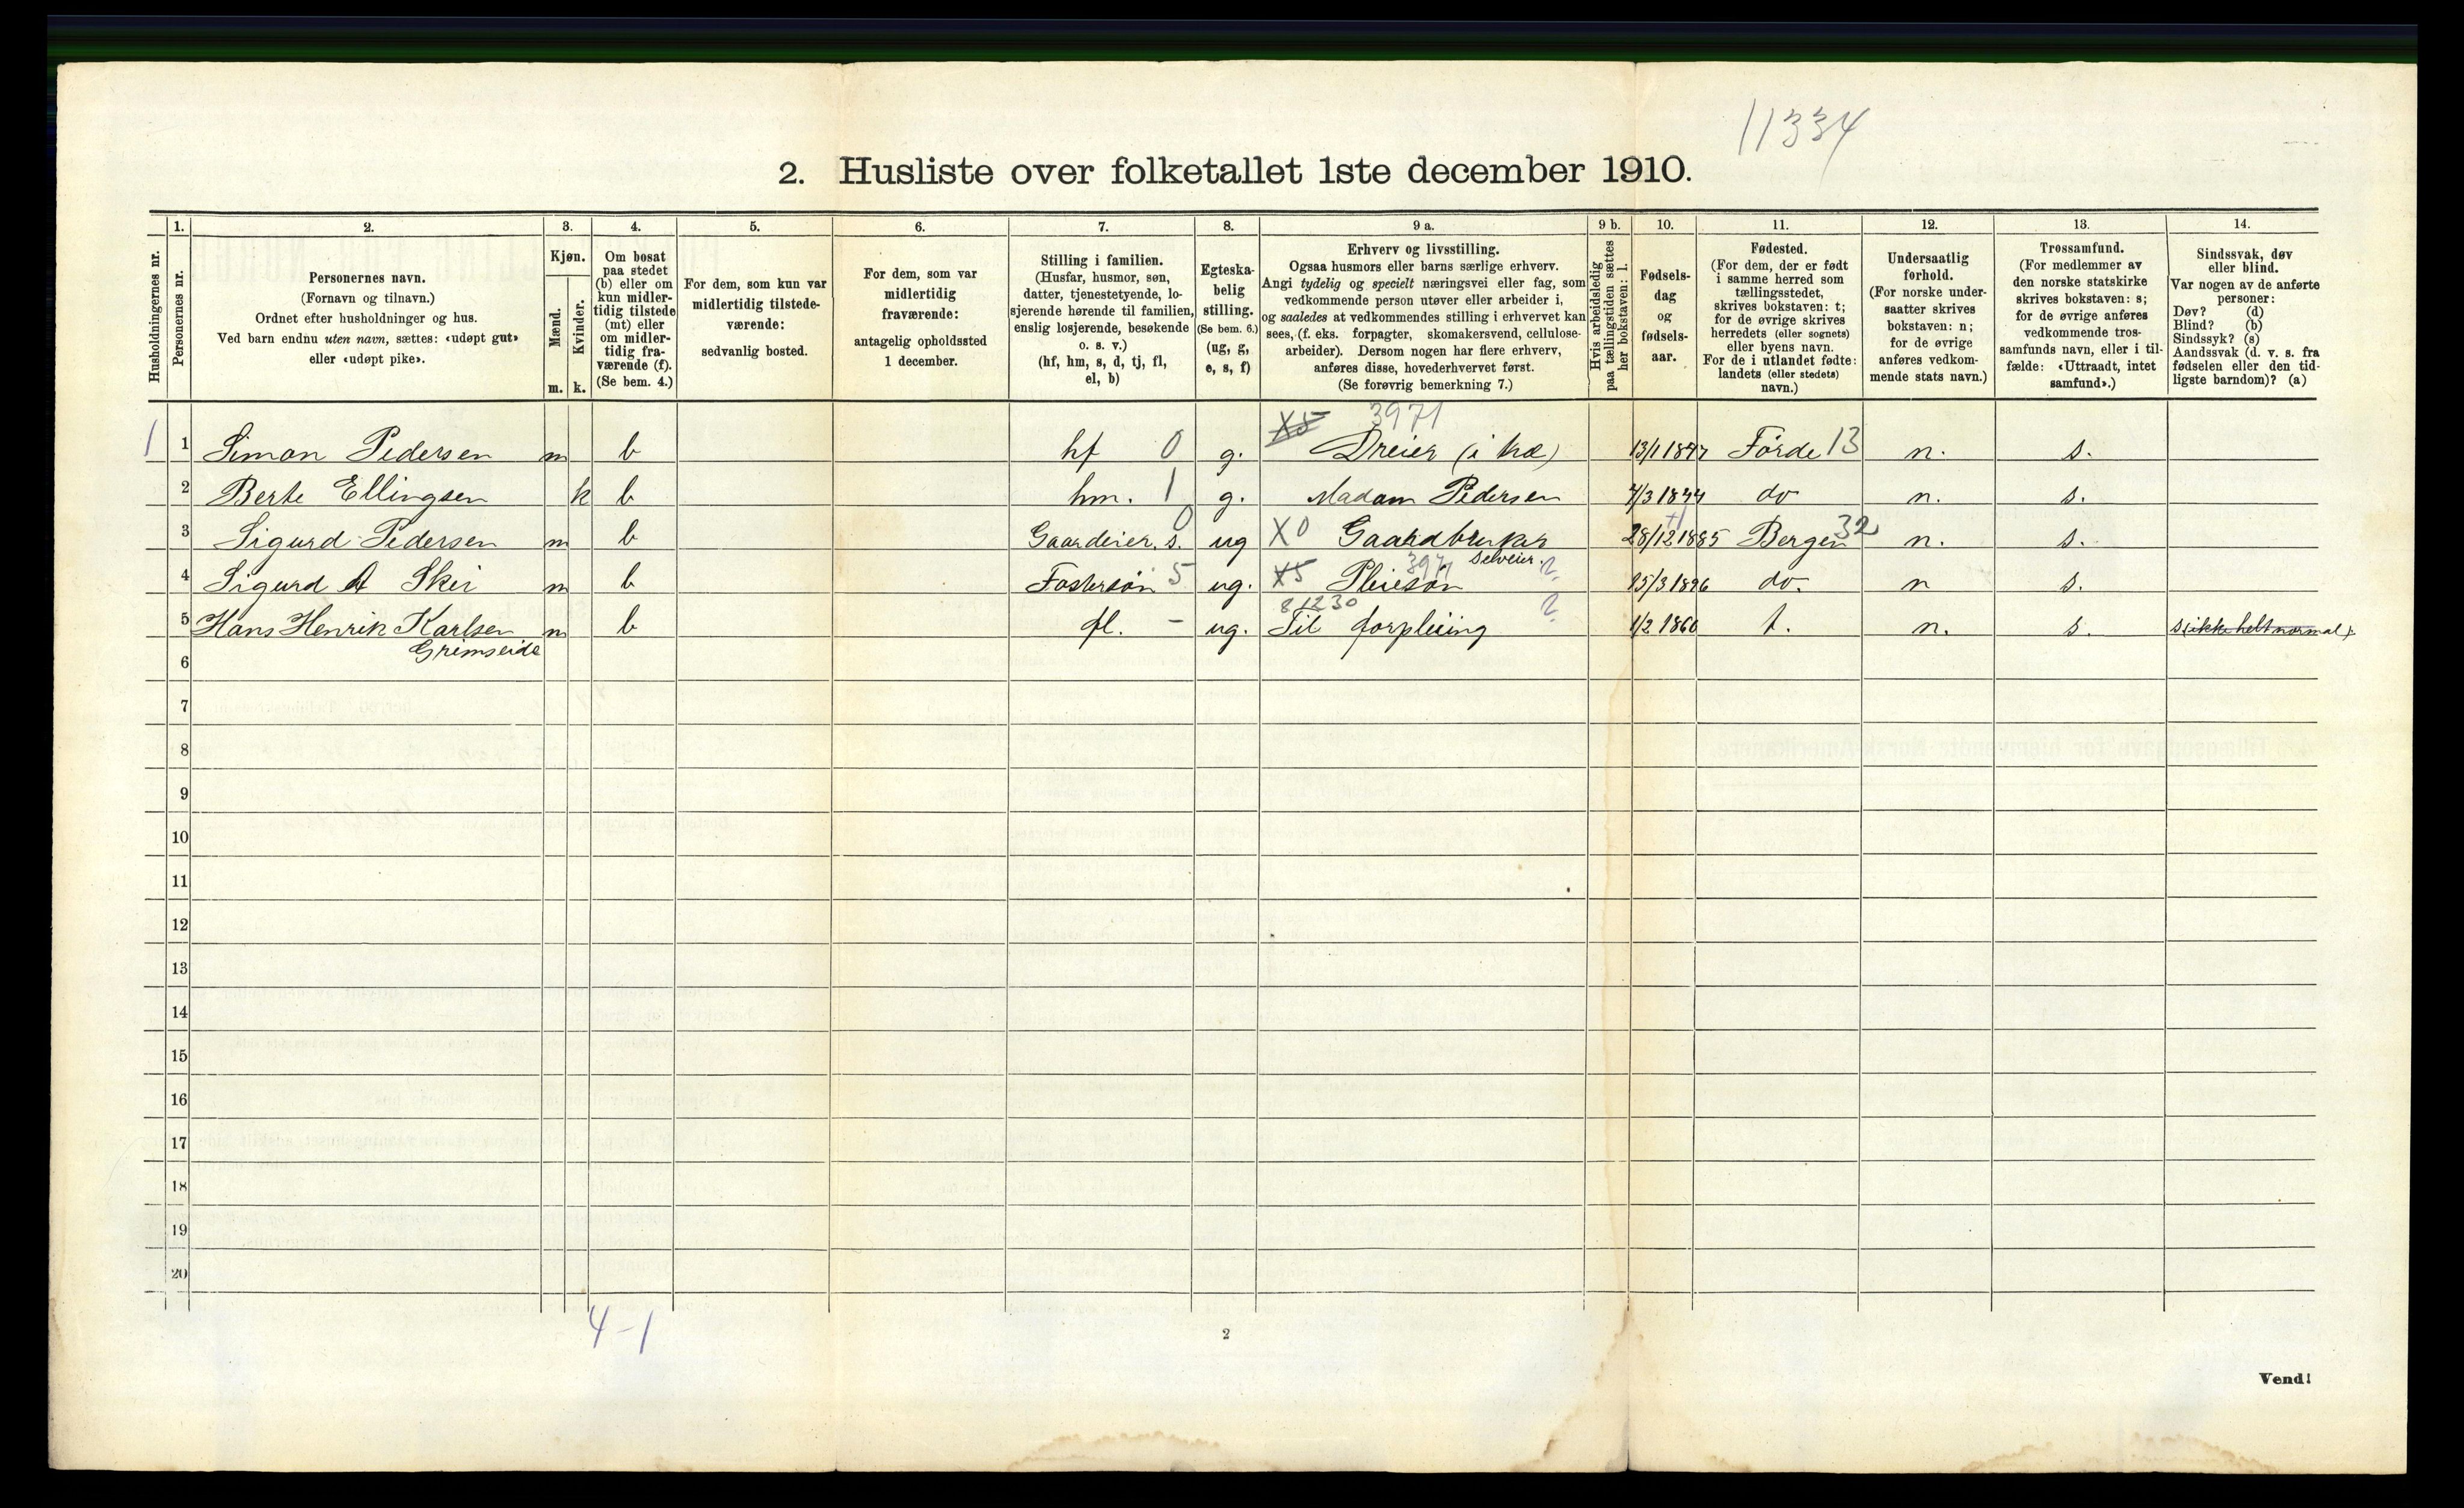 11334
2. Husliste over folketallet 1ste december 1910.
Husholdningernes nr.
1. Personernes nr.
2. Personernes navn. (Fornavn og tilnavn.) Ordnet efter husholdninger og hus. Ved barn endnu uten navn, sættes: «udøpt gut» eller «udøpt pike».
3. Kjøn. Mænd. m. Kvinder. k.
4. Om bosat paa stedet (b) eller om kun midlertidig tilstede (mt) eller om midlertidig fraværende (f). (Se bem. 4.)
5. For dem, som kun var midlertidig tilstedeværende: sedvanlig bosted.
6. For dem, som var midlertidig fraværende: antagelig opholdssted 1 december.
7. Stilling i familien. (Husfar, husmor, søn, datter, tjenestetyende, losjerende hørende til familien, enslig losjerende, besøkende o. s. v.) (hf, hm, s, d, tj, fl, el, b)
8. Egteskabelig stilling. (Se bem. 6.) (ug, g, e, s, f)
9 a. Erhverv og livsstilling. Ogsaa husmors eller barns særlige erhverv. Angi tydelig og specielt næringsvei eller fag, som vedkommende person utøver eller arbeider i, og saaledes at vedkommendes stilling i erhvervet kan sees, (f. eks. forpagter, skomakersvend, cellulosearbeider). Dersom nogen har flere erhverv, anføres disse, hovederhvervet først. (Se forøvrig bemerkning 7.)
9 b. Hvis arbeidsledig paa tællingstiden sættes her bokstaven: l.
10. Fødselsdag og fødselsaar.
11. Fødested. (For dem, der er født i samme herred som tællingsstedet, skrives bokstaven: t; for de øvrige skrives herredets (eller sognets) eller byens navn. For de i utlandet fødte: landets (eller stedets) navn.)
12. Undersaatlig forhold. (For norske undersaatter skrives bokstaven: n; for de øvrige anføres vedkommende stats navn.)
13. Trossamfund. (For medlemmer av den norske statskirke skrives bokstaven: s; for de øvrige anføres vedkommende trossamfunds navn, eller i tilfælde: «Uttraadt, intet samfund».)
14. Sindssvak, døv eller blind. Var nogen av de anførte personer: Døv? (d) Blind? (b) Sindssyk? (s) Aandssvak (d. v. s. fra fødselen eller den tidligste barndom)? (a)
X5 3971
1 1 Simon Pedersen m b hf 0 g. Dreier (i træ) 13/1 1847 Førde 13 n. s.
2 Berte Ellingsen k b hm. 1 g. Madam Pedersen 7/3 1844 do n. s.
3 Sigurd Pedersen m b Gaardeier. s. 0 ug X0 Gaardbruker selveier. 28/12 1885 Bergen 32 n. s.
4 Sigurd A Skei m b Fostersøn 5 ug. X5 Pleiesøn 3971 ? 15/3 1896 do. n s.
81230
5 Hans Henrik Karlsen Grimseide m b fl. - ug. Til forpleiing ? 1/2 1860 t. n. s. s (ikke helt normal).
6
7
8
9
10
11
12
13
14
15
16
17
18
19
20
4-1
2
Vend!